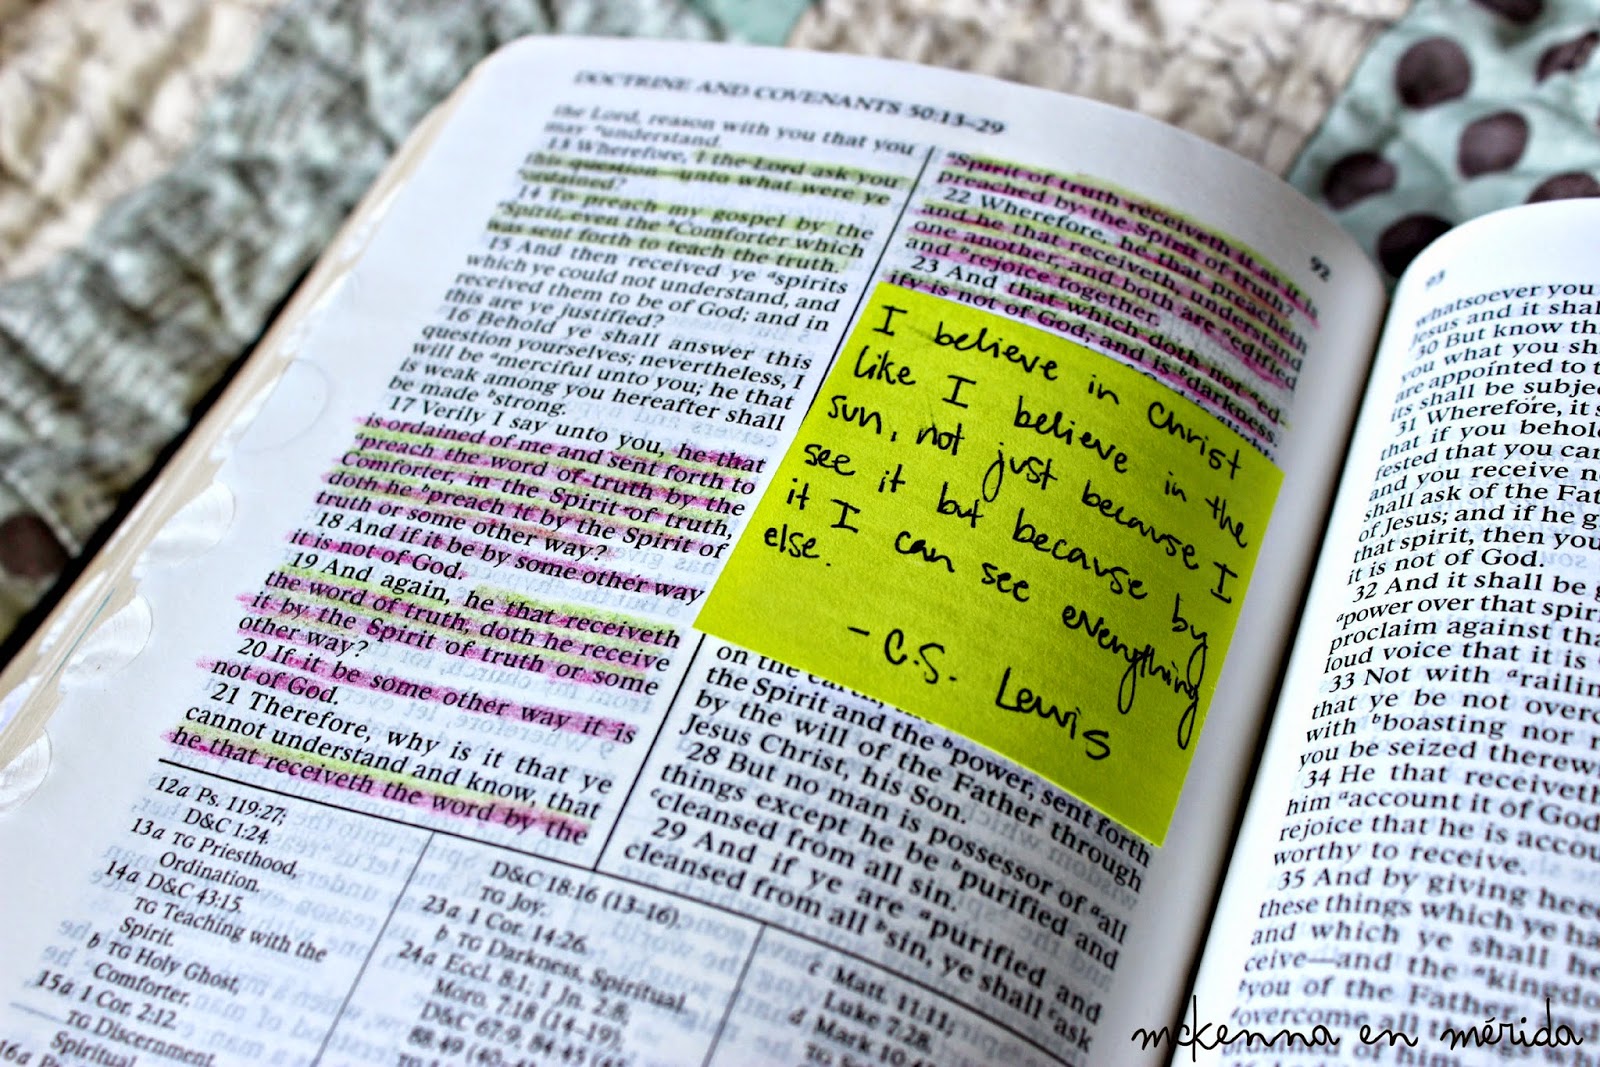 DOCTRINE AND COVENANTS 50:13–29
92
the Lord, reason with you that you
may ᵃunderstand.
13 Wherefore, I the Lord ask you
this question—unto what were ye
ᵃordained?
14 To preach my gospel by the
ᵃSpirit, even the ᵇComforter which
was sent forth to teach the truth.
15 And then received ye ᵃspirits
which ye could not understand, and
received them to be of God; and in
this are ye justified?
16 Behold ye shall answer this
question yourselves; nevertheless, I
will be ᵃmerciful unto you; he that
is weak among you hereafter shall
be made ᵇstrong.
17 Verily I say unto you, he that
is ordained of me and sent forth to
ᵃpreach the word of truth by the
Comforter, in the Spirit of truth,
doth he ᵇpreach it by the Spirit of
truth or some other way?
18 And if it be by some other way
it is not of God.
19 And again, he that receiveth
the word of truth, doth he receive
it by the Spirit of truth or some
other way?
20 If it be some other way it is
not of God.
21 Therefore, why is it that ye
cannot understand and know, that
he that receiveth the word by the
ᵃSpirit of truth receiveth it as it is
preached by the Spirit of truth?
22 Wherefore, he that preacheth
and he that receiveth, understand
one another, and both are edified
and ᵃrejoice together.
23 And that which doth not ᵃed-
ify is not of God, and is ᵇdarkness.
I believe in Christ
like I believe in the
sun, not just because I
see it but because by
it I can see everything
else.
- C.S. Lewis
on the earth,
the Spirit and the ᵇpower, sent forth
by the will of the Father through
Jesus Christ, his Son.
28 But no man is possessor of ᵃall
things except he be ᵇpurified and
ᶜcleansed from all sin.
29 And if ye are ᵃpurified and
cleansed from all ᵇsin, ye shall ᶜask
12a Ps. 119:27;
D&C 1:24.
13a TG Priesthood,
Ordination.
14a D&C 43:15.
TG Teaching with the
Spirit.
b TG Holy Ghost,
Comforter.
15a 1 Cor. 2:12.
TG Discernment,
Spiritual.
16a
D&C 18:16 (13–16).
TG Joy.
23a 1 Cor. 14:26.
b TG Darkness, Spiritual.
24a Eccl. 8:1; 1 Jn. 2:8;
Moro. 7:18 (14–19);
D&C 67:9; 84:45
88:49
c Matt. 11:11;
Luke 7:28.
d Mark 10:
93
whatsoever you
Jesus and it shal
30 But know thi
what you sh
are appointed to t
its shall be subjec
31 Wherefore, it s
that if you behol
fested that you can
and you receive no
shall ask of the Fat
of Jesus; and if he g
that spirit, then you
it is not of God.
32 And it shall be g
ᵃpower over that spiri
proclaim against tha
loud voice that it is
33 Not with ᵃrailin
that ye be not overc
with ᵇboasting nor r
you be seized therew
34 He that receiveth
him ᵃaccount it of God
rejoice that he is accou
worthy to receive.
35 And by giving heed
these things which ye ha
and which ye shall he
ceive—and the ᵃkingdo
ᵇyou of the Father
ᶜovercome all
mckenna en mérida